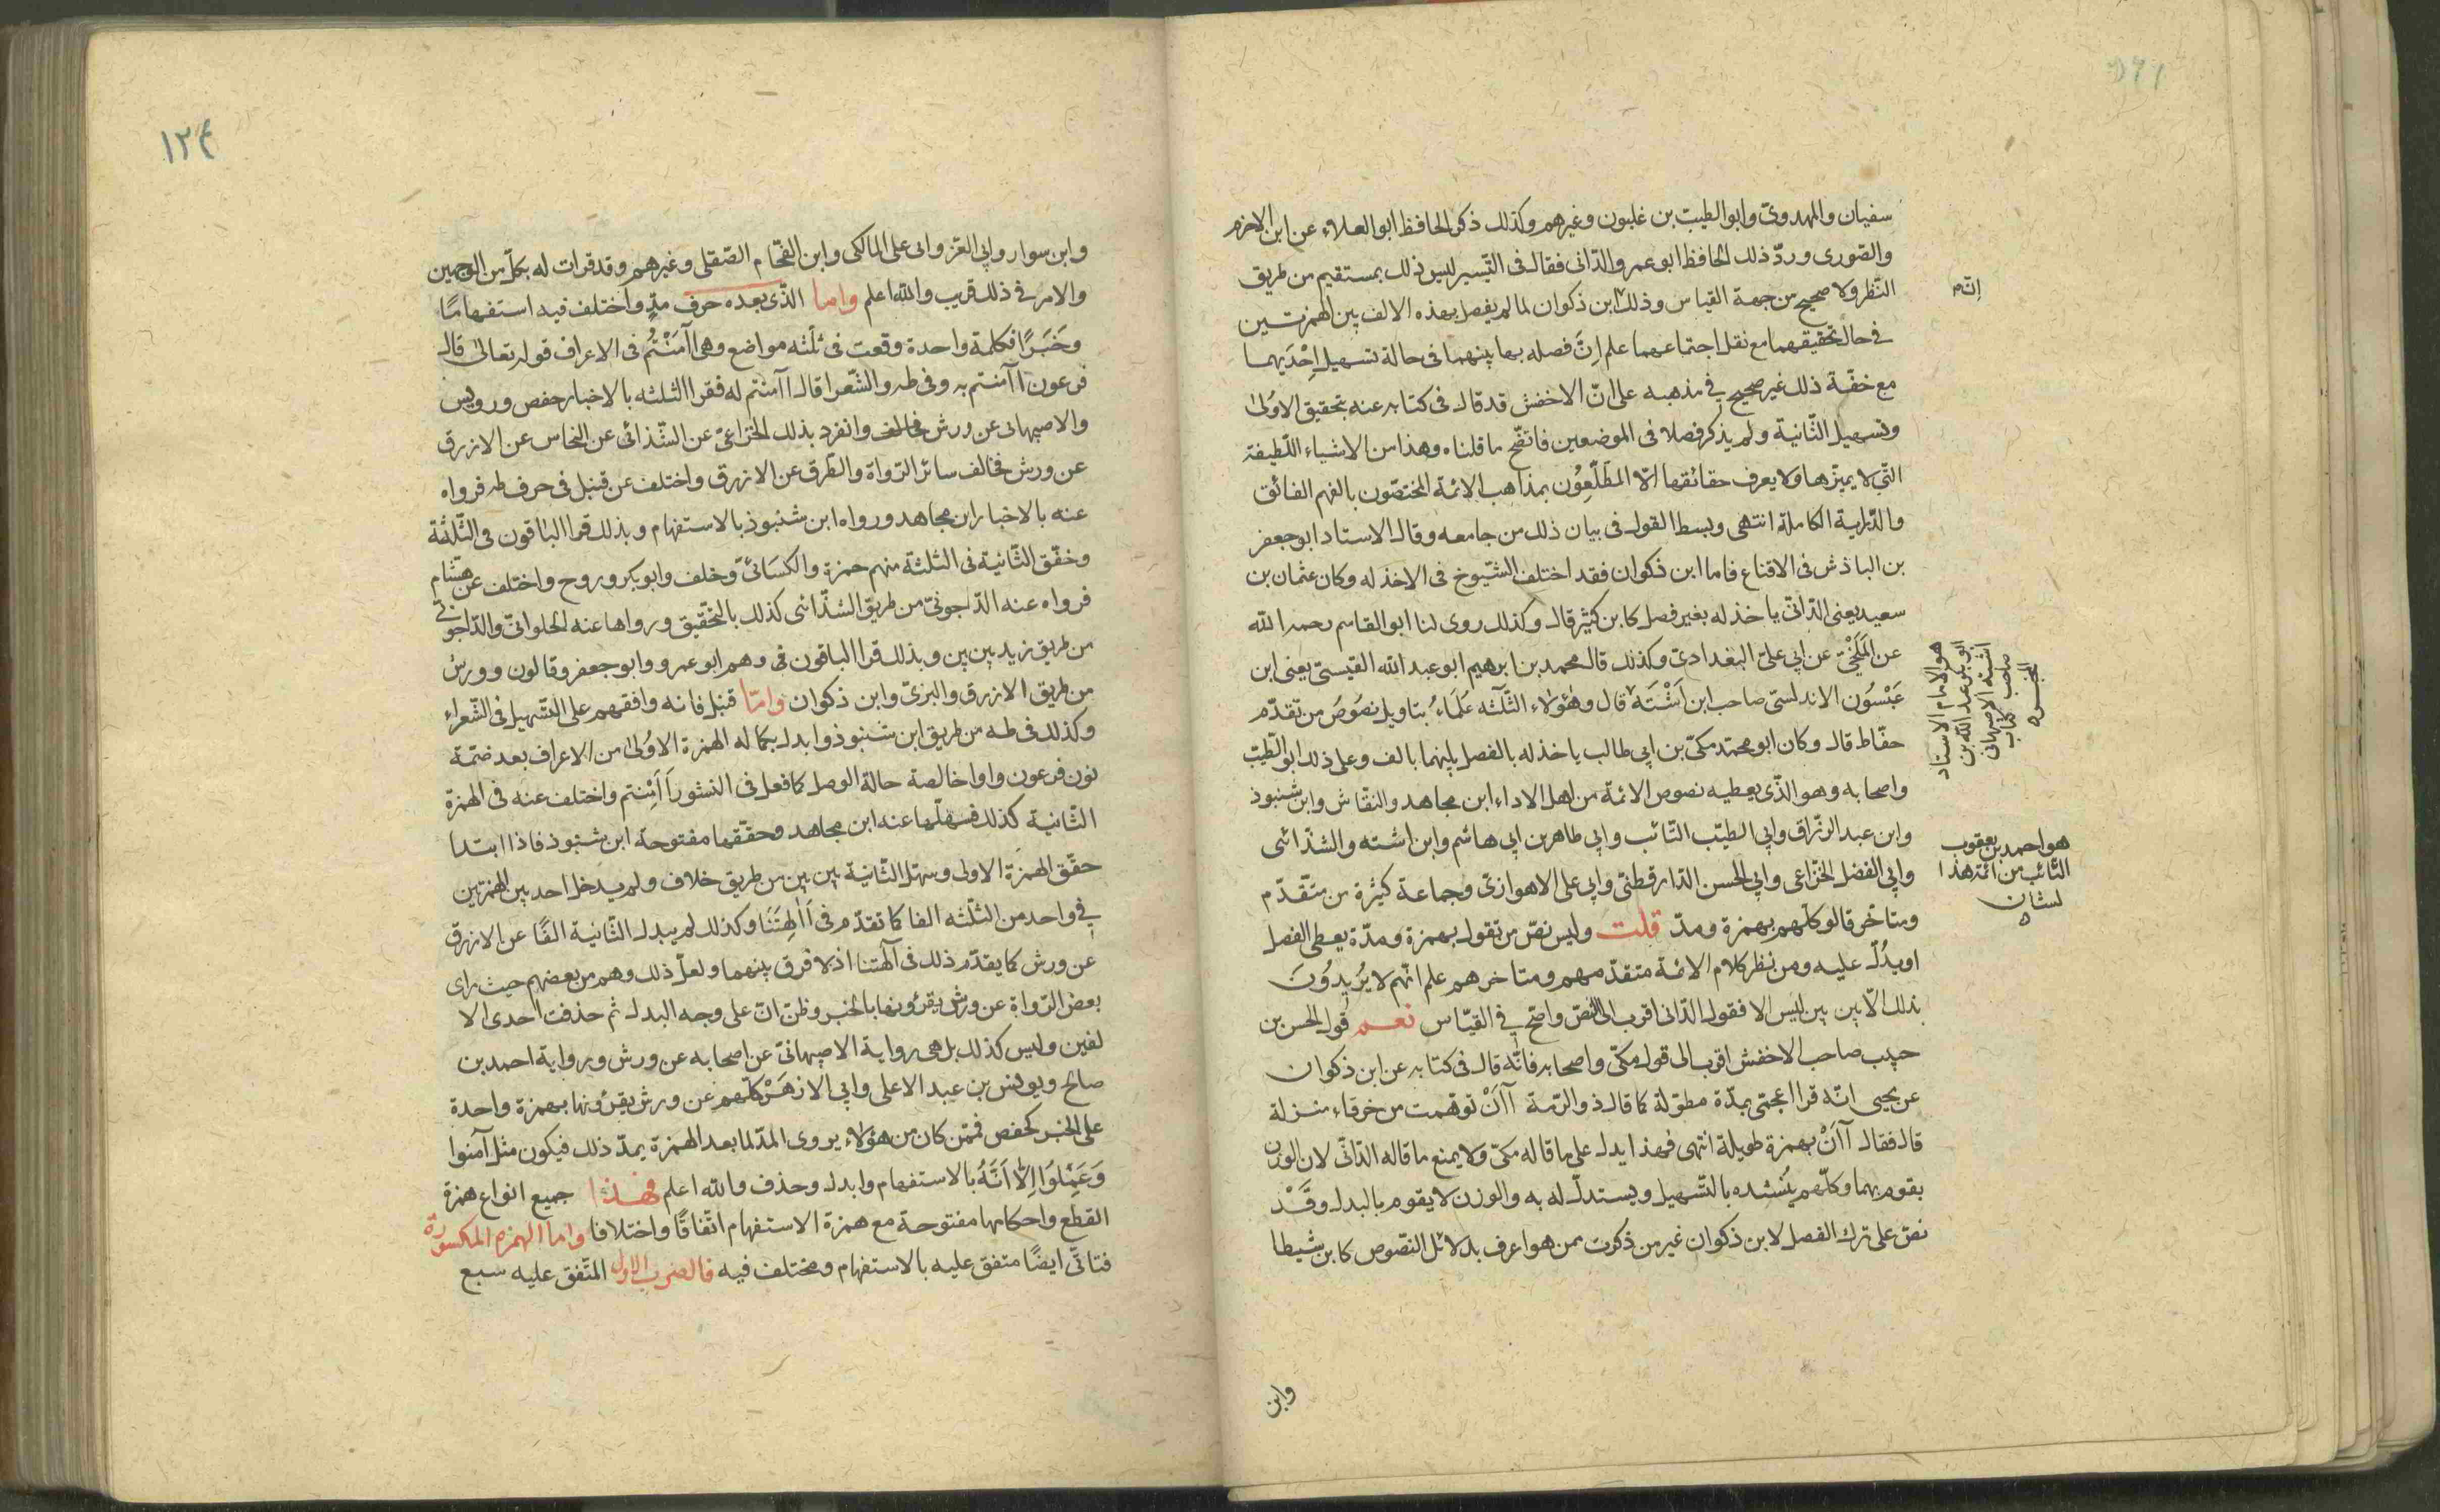 سفيان والمهدوى وابو الطيب بن غلبون وغيرهم وكذلك ذكر الحافظ ابو العلاء عن ابن الاخرم
والصورى وردّ ذلك الحافظ ابو عمرو الدانى فقال فى التيسير ليس ذلك بمستقيم من طريق
النّظر ولا صحيح من جهة القياس وذلك ابن ذكوان لما لم يفصل بهذه الالف بين الهمزتين
فى حال تحقيقهما مع نقل اجتماعهما علم انّ فصله بها بينهما فى حالة تسهيل احْدَيهما
مع خفّة ذلك غير صحيح فى مذهبه على انّ الاخفش قد قال فى كتابه عنه بتحقيق الاوُلىٰ
وتسهيل الثّانية ولم يذكر فصلا فى الموضعين فاتضّح ما قلناه وهذا من الاشياء اللّطيفة
الّتى لا يميّزها ولا يعرف حقائقها الّا المطّلعُون بمذاهب الائمة المختصّون بالفهم الفائق
والدّراية الكاملة انتهى وبسط القول فى بيان ذلك من جامعه وقال الاستاد ابو جعفر
بن الباذش فى الاقناع فاما ابن ذكوان فقد اختلف الشّيوخ فى الاخذ له وكان عثمان بن
سعيد يعنى الدّانىّ ياخذ له بغير فصل كابن كثير قال وكذلك روى لنا ابو القاسم رحمه الله
عن المَلَخِىّ عن ابى علىّ البغدادىّ وكذلك قال محمد بن ابرهيم ابو عبد الله القيسىّ يعنى ابن
عَبْسُون الاندلسىّ صاحب ابن اَشْتَة قال وهٰؤلاء الثّلٰثه عُلَمَاء بتاويل نصُوصُ من تقدّم
حفّاظ قال وكان ابو محمّد مكىّ بن ابى طالب ياخذ له بالفصل بينهما بالف وعلى ذلك ابو الطّيّب
واصحابه وهو الّذى يعطيه نصوص الائمة من اهل الاداء ابن مجاهد والنقّاش وابن شنبوذ
وابن عبد الرزّاق وابى الطيّب التّائب وابى طاهر بن ابى هاشم وابن اشته والشذّائى
وابى الفضل الخزاعى وابى الحسن الدّارقطنىّ وابى على الاهوازىّ وجماعة كثيرة من متقدّم
ومتاخّر قالو كلّهم بهمزة ومدّ قلت وليس نصّ من تقول بهمزة ومدّة يعطى الفصل
او يدُلّ عليه ومن نظر كلام الائمة متقدّمهم ومتاخرهم علم انّهم لا يُريدُونَ
بذلك الّا بين بين ليس الا فقول الدّانى اقرب الى النصّ واصّح فى القيّاس نعم قول الحسن بن
حبيب صاحب الاخفش اقرب الى قول مكىّ واصحابه فانّه قال فى كتابه عن ابن ذكوان
عن يحيى انّه قرا اعجمّى بمدّة مطوّلة كما قال ذوالرّمة آاَنْ توهّمت من خرقاء منزلة
قال فقال آاَنْ بهمزة طويلة انتهى فهذا يدل على ما قاله مكىّ ولا يمنع ما قاله الدّانّى لان الوزن
يقوم بهما وكلّهم يُنشده بالتسّهيل ويستدلّ له به والوزن لا يقوم بالبدل وقَدْ
نصّ على ترك الفصل لابن ذكوان غير من ذكرت ممن هو اعرف بدلائل النصّوص كابن شيطا
انه
هو الامام الاستاد
ابو بكر عبد الله بن
اشته الاصبهانى
صاحب كتاب
المحبر
هو احمد بن يعقوب
التائب من ائمة هذا
لشان
وابن
١٢٤
وابن سوار وابى العزّ وابى على المالكى وابن الفحّام الصّقلى وغيرهم وقد قرات له بكلّ من الوجهين
والامر فى ذلك قريب والله اعلم واما الّذى بعده حرف مدٍّ واختلف فيه استفهامًا
وخَبَرًا فكلمة واحدة وقعت فى ثلٰثه مواضع وهى اٰآمَنْتُم فى الاعراف قوله تعالىٰ قال
فرعون اٰآمنتم به وفى طٰه والشّعرا قال اٰآمنتم له فقرا الثلثه بالاخبار حفص ورويس
والاصبهانى عن ورش فخالف وانفرد بذلك الخزاعىّ عن الشّذائى عن النخاس عن الازرق
عن ورش فخالف سائر الرّواة والطّرق عن الازرق واختلف عن قنبل فى حرف طٰه فرواه
عنه بالاخبار ابن مجاهد ورواه ابن شنبوذ بالاستفهام وبذلك قرا الباقون فى الثّلثة
وحقّق الثّانية فى الثلثة منهم حمزة والكسائىّ وخلف وابو بكر وروح واختلف عن هشام
فرواه عنه الدّاجونىّ من طريق الشذّائى كذلك بالتحّقيق ورواها عنه الحلوانىّ والدّاجونى
من طريق زيد بين بين وبذلك قرا الباقون فى وهم ابو عمرو وابو جعفر وقالون وورش
من طريق الازرق والبزىّ وابن ذكوان وامّا قنبل فانه وافقهم على التسّهيل فى الشّعراء
وكذلك فى طه من طريق ابن شنبوذ وابدل بكماله الهمزة الاوُلىٰ من الاعراف بعد ضمّة
نون فرعون واوا خالصة حالة الوصل كما فعل فى النشور أَاَمِنتم واختلف عنه فى الهمزة
الثّانية كذلك فسهلّها عنه ابن مجاهد وحقّقها مفتوحة ابن شنبوذ فاذا ابتدا
حقّق الهمزة الاولى وسهّل الثّانية بين بين من طريق خلاف ولم يدخل احد بين الهمزتين
فى واحد من الثلّثه الفا كما تقدّم فى أَاٰلِهتَنَا وكذلك لم يبدل الثّانية الفًا عن الازرق
عن ورش كما يقدّم ذلك فى آلهتنا اذ لا فرق بينهما ولعلّ ذلك وهم من بعضهم حيث راى
بعض الرّواة عن ورش يقرؤنها بالخبر وظنّ انّ على وجه البدل ثم حذفت احدى الا
لفين وليس كذلك بل هى رواية الاصبهانىّ عن اصحابه عن ورش ورواية احمد بن
صالح ويونس بن عبد الاعلى وابى الازهَرْ كلّهم عن ورش يقرؤنها بهمزة واحدة
على الخبر كحفص فمّن كان من هؤلاء يروى المدّ لما بعد الهمزة يمدّ ذلك فيكون مثل آمنوا
وَعَمِلُوا اِلّا اَنّهُ بالاستفهام وابدل وحذف والله اعلم فهذا جميع انواع همزة
القطع واحكامها مفتوحة مع همزة الاستفهام اتّفاقًا واختلافا واما الهمزه المكسورة
فتاتّى ايضًا متفق عليه بالاستفهام ومختلف فيه فالضرب الاول المتّفق عليه سبع